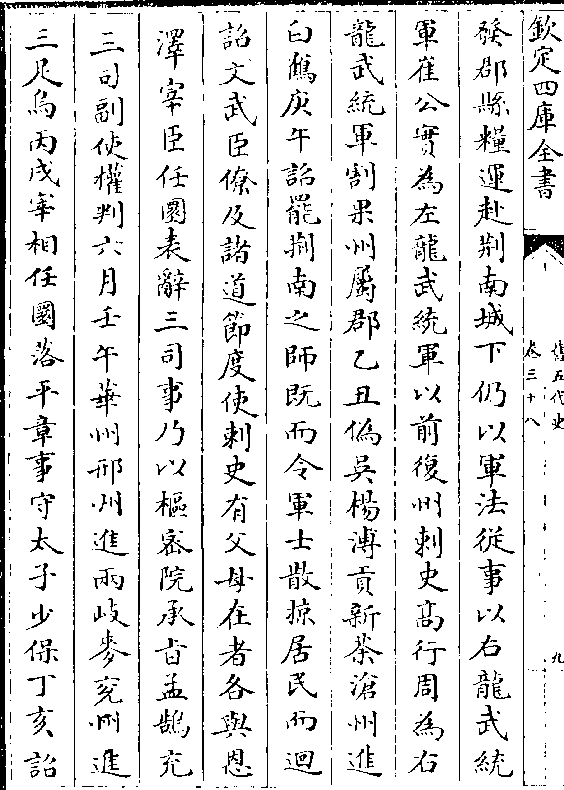 欽定四庫全書
舊五代史
卷三十八
九
發郡縣糧運赴荆南城下仍以軍法從事以右龍武統
軍崔公實為左龍武統軍以前復州刺史髙行周為右
龍武統軍割果州屬郡乙丑偽吳楊溥貢新茶滄州進
白鶴庚午詔罷荆南之師既而令軍士散掠居民而迴
詔文武臣僚及諸道節度使刺史有父母在者各與恩
澤宰臣任圜表辭三司事乃以樞密院承旨孟鵠充
三司副使權判六月壬午華州邢州進兩岐麥兖州進
三足烏丙戌宰相任圜落平章事守太子少保丁亥詔